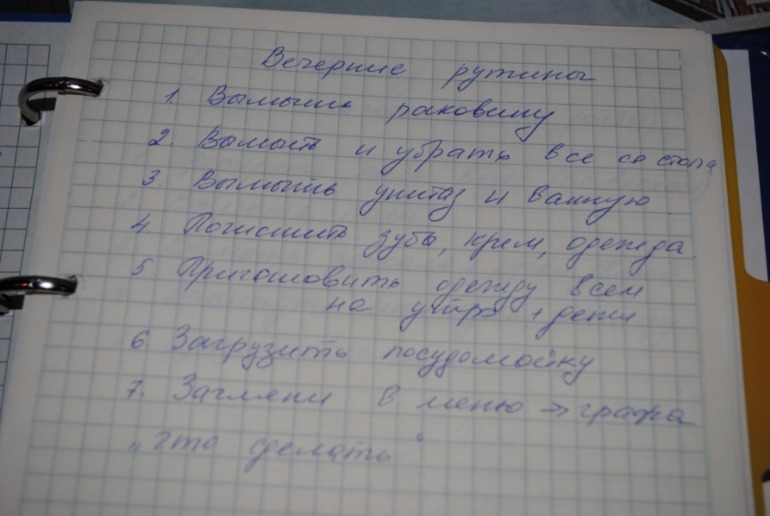 Вечерние рутины
1. Вымыть раковину
2. Вымыть и убрать все со стола
3. Вымыть унитаз и ванную
4. Почистить зубы, крем, одежда
5. Приготовить одежду всем
на утро + дети
6. Загрузить посудомойку
7. Загляни в меню → графа
„что сделать“